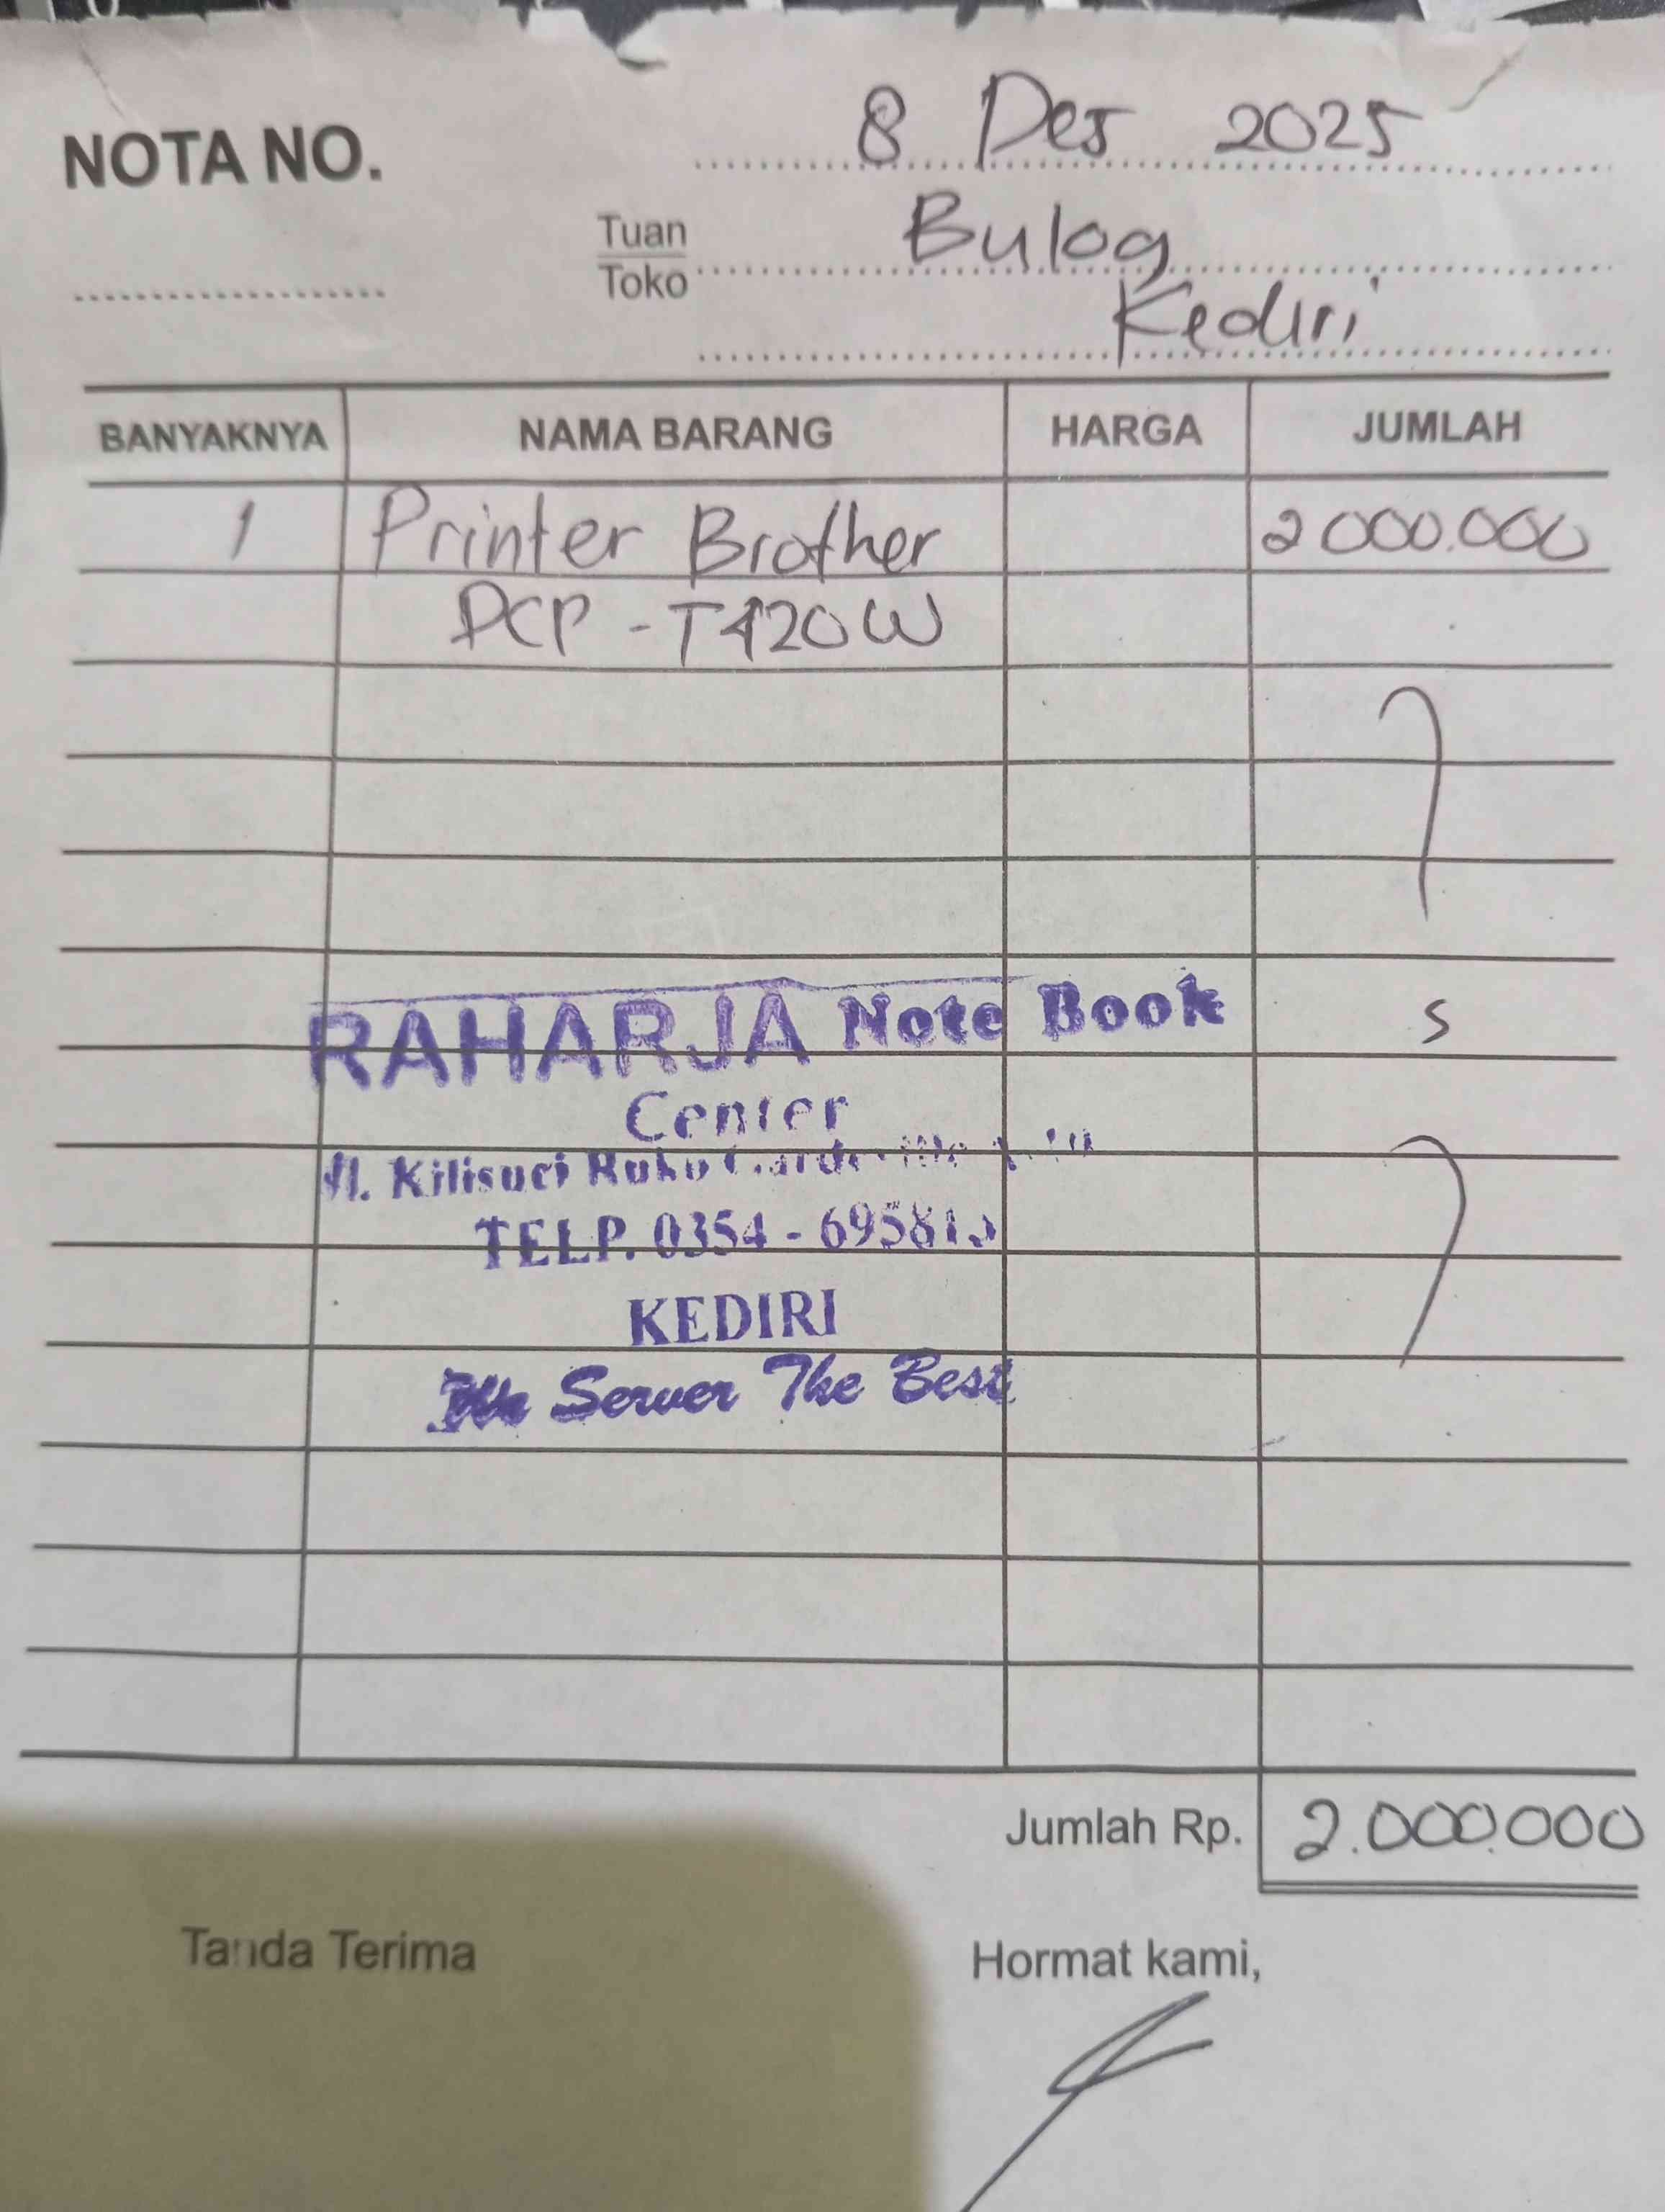 8 Des 2025
NOTA NO.
Tuan
Toko
Bulog
Kediri
BANYAKNYA NAMA BARANG HARGA JUMLAH
1 Printer Brother 2000.000
DCP - T420W
RAHARJA Note Book
Center
Jl. Kilisuci Ruko
TELP. 0354 -
KEDIRI
We Server The Best
Jumlah Rp. 2.000.000
Tanda Terima
Hormat kami,